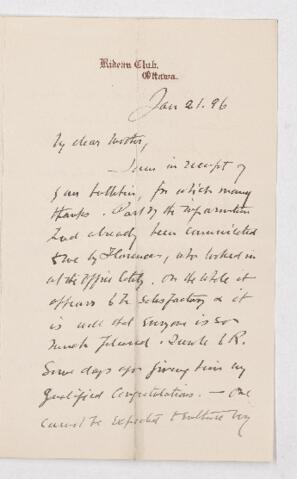 Rideau Club,
Ottawa.
Jan 21. 96
My dear Mother,
I am in receipt of
your bulletin, for which many
thanks. Part of the information
had already been communicated
to me by Florence, who looked in
at the Office lately. On the whole it
appears to be satisfactory & it
is well that everyone is so
much pleased. I wrote to R.
some days ago giving him my
qualified congratulations. — One
cannot be expected to enthuse very